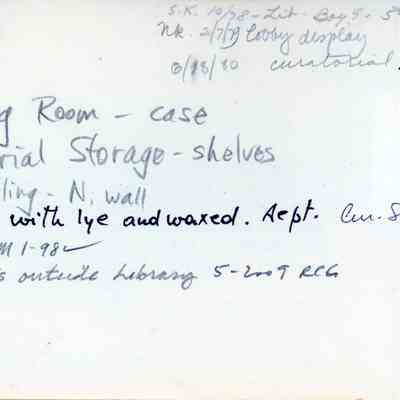 S.K. 10/78 - Lib - Bay 9 - 5
NK. 2/7/79 lobby display
8/18/80 curatorial.
g Room - case
rial Storage - shelves
ling - N. wall
with lye and waxed. Dept. Cur. S
M 1-98
s outside Library 5-2009 RCG